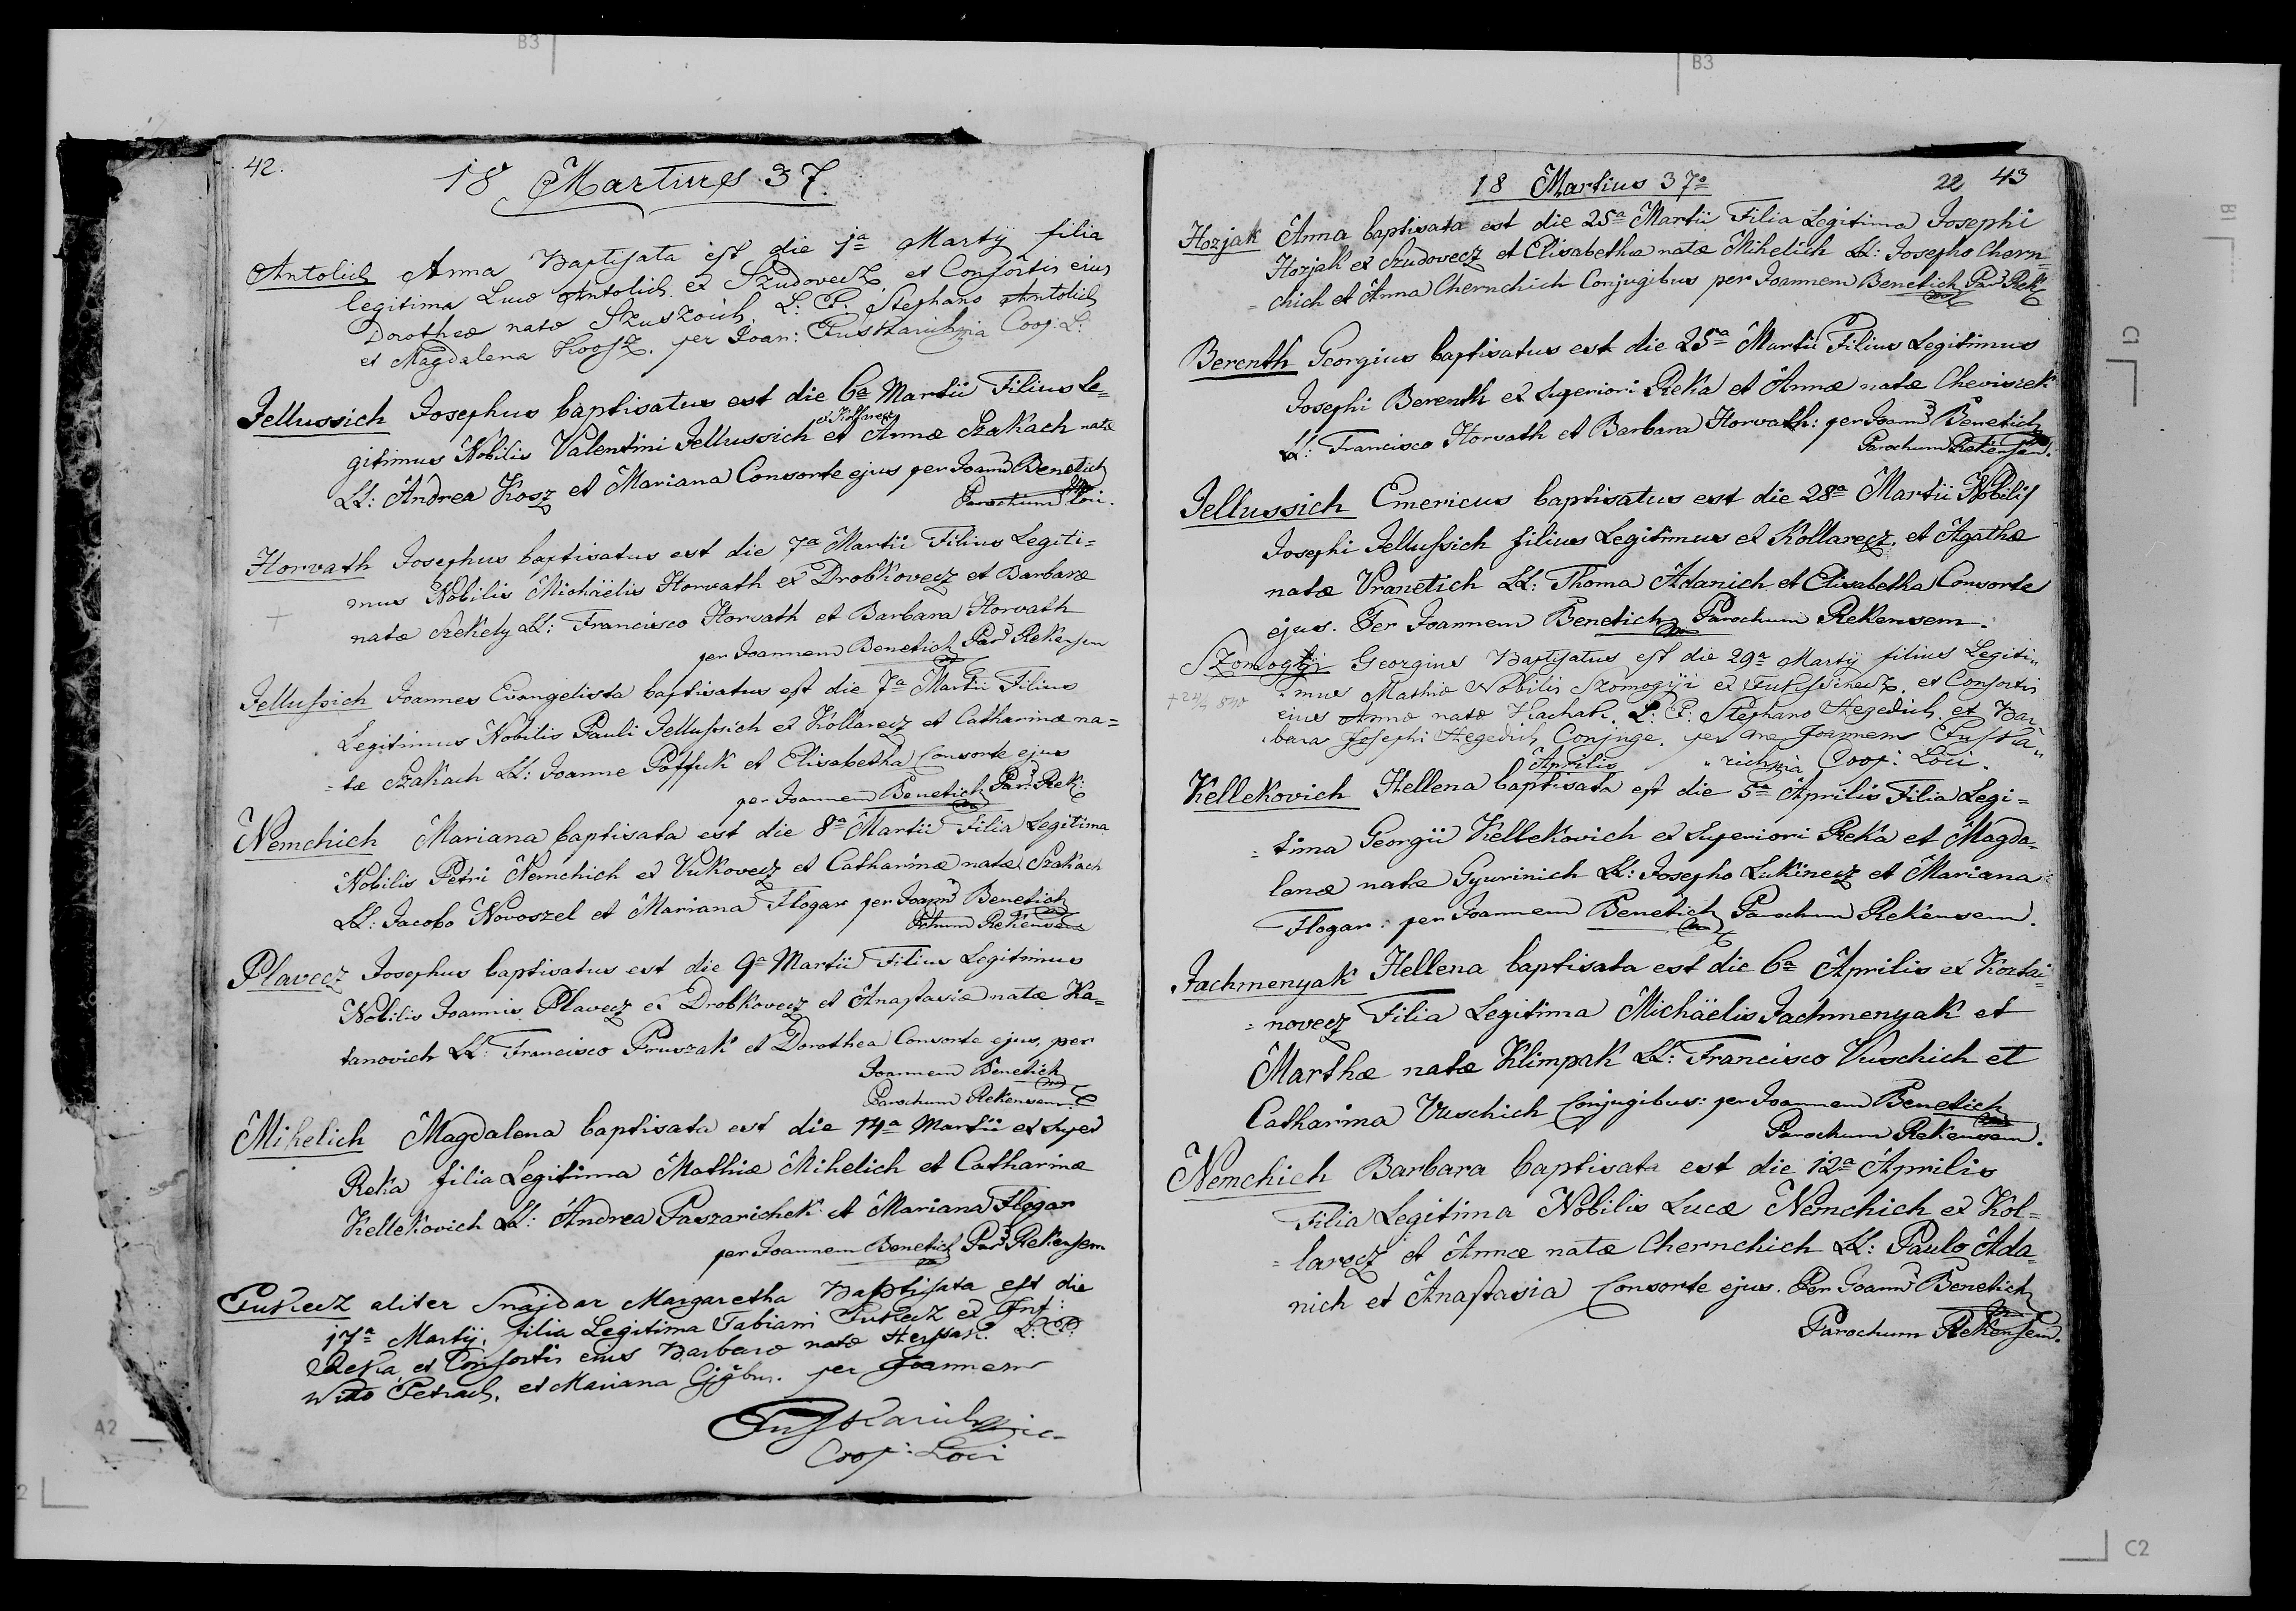 42.
18 Martius 37.
Antolich Anna Baptisata est die 1a Martij filia
legitima Luco Antolich ex Szudovecz, et Consortis eius
Dorotheo nato Szuszoich. L: P: Stephano Antolich
et Magdalena Koosz. per Joan: Coop: L:
Jellussich Josephus baptisatus est die 6a Martii Filius Le=
ex Kollarecz
gitimus Nobilis Valentini Jellussich et Annæ Szakach natæ
LL: Andrea Kosz et Mariana Consorte ejus per Joann Benetich
Parochum Loci.
Horvath Josephus baptisatus est die 7a Martii Filius Legiti=
mus Nobilis Michäelis Horvath ex Drobkovecz et Barbaræ
natæ Szekely LL: Francisco Horvath et Barbara Horvath
per Joannem Benetich Par Rekensem
Jellussich Joannes Evangelista baptisatus est die 7a Martii Filius
Legitimus Nobilis Pauli Jellussich ex Kollarecz et Catharinæ na=
=tæ Szakach LL: Joanne Potfuk et Elisabetha Consorte ejus
per Joannem Benetich Par: Rek:
Nemchich Mariana baptisata est die 8a Martii Filia Legitima
Nobilis Petri Nemchich ex Vukovecz et Catharinæ natæ Szakach
LL: Jacobo Novoszel et Mariana Flogar per Joann Benetich
Pchum Rekensem
Plavecz Josephus baptisatus est die 9a Martii Filius Legitimus
Nobilis Joannis Plavecz ex Drobkovecz et Anastasiæ natæ Ka=
tanovich LL: Francisco Pruszak et Dorothea Consorte ejus, per
Joannem Benetich
Parochum Rekensem
Mihelich Magdalena baptisata est die 14a Martii ex Super
Reka filia Legitima Mathiæ Mihelich et Catharinæ
Kellekovich LL: Andrea Paszarichek et Mariana Flogar
per Joannem Benetich Par Rekensem
aliter Snajdar Margaretha Baptisata est die
17a Martij, filia Legitima Fabiani ex Inf:
Reka, et Consortis eius Barbaro nato L: P:
Vito Petrach, et Mariana per Joannem
Coop: Loci
18 Martius 37o
22 43
Hozjak Anna baptisata est die 25a Martii Filia Legitima Josephi
Hozjak ex Szudovecz et Elisabethæ natæ Mihelich LL: Josepho Chern=
=chich et Anna Chernchich Conjugibus per Joannem Benetich Par Rek
Berenth Georgius baptisatus est die 25a Martii Filius Legitimus
Josephi Berenth ex Superiori Reka et Annæ natæ Chevizek
LL: Francisco Horvath et Barbara Horvath: per Joann Benetich
Parochum Rekensem.
Jellussich Emericus baptisatus est die 28a Martii Nobilis
Josephi Jellussich filius Legitimus ex Kollarecz. et Agathæ
natæ Vranetich LL: Thoma Adanich et Elisabetha Consorte
ejus. Per Joannem Benetich Parochum Rekensem.
Szomogyi Georgius Baptisatus est die 29a Martij filius Legiti=
mus Mathio Nobilis Szomogyi ex et Consortis
eius Anno nato L: P: Stephano Hegedich, et Bar
bara Josephi Hegedich Conjuge. per me Joannem
Coop: Loci.
Aprilis
Kellekovich Hellena baptisata est die 5a Aprilis Filia Legi=
=tima Georgii Kellekovich ex Superiori Reka et Magda=
lenæ natæ Gyurinich LL: Josepho Lukinecz et Mariana
Flogar: per Joannem Benetich Parochum Rekensem.
Jachmenyak Hellena baptisata est die 6a Aprilis ex Koztai=
=novecz Filia Legitima Michäelis Jachmenyak et
Marthæ natæ Klimpak LL: Francisco Vuschich et
Catharina Vuschich Conjugibus: per Joannem Benetich
Parochum Rekensem.
Nemchich Barbara baptisata est die 12a Aprilis
Filia Legitima Nobilis Lucæ Nemchich ex Kol=
=larecz et Annæ natæ Chernchich LL: Paulo Ada=
nich et Anastasia Consorte ejus. Per Joann Benetich
Parochum Rekensem.
B3
B3
B1
C1
A2
2
C2